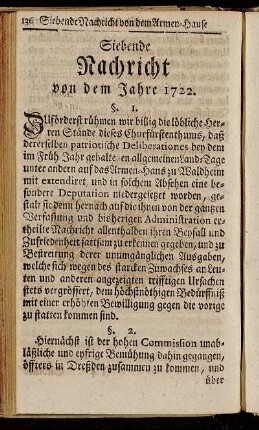 136 Siebende Nachricht von dem Armen-Hause
Siebende
Nachricht
von dem Jahre 1722.
§. 1.
Zuförderst rühmen wir billig die löbliche Her-
ren Stände dieses Churfürstenthums, daß
dererselben patriotische Deliberationes bey dem
im Früh Jahr gehaltenen allgemeinen Land-Tage
unter andern auf das Armen-Haus zu Waldheim
mit extendiret, und in solchem Absehen eine be-
sondere Deputation niedergesetzet worden, ge-
stalt sie denn hernach auf die ihnen von der gantzen
Verfassung und bisherigen Administration er-
theilte Nachricht allenthalben ihren Beyfall und
Zufriedenheit sattsam zu erkennen gegeben, und zu
Bestreitung derer unumgänglichen Ausgaben,
welche sich wegen des starcken Zuwachses an Leu-
ten und anderen angezeigten trifftigen Ursachen
stets vergrössert, dem höchstnöthigen Bedürffniß
mit einer erhöhten Bewilligung gegen die vorige
zu statten kommen sind.
§. 2.
Hiernächst ist der hohen Commission unab-
läßliche und eyfrige Bemühung dahin gegangen,
öffters in Dreßden zusammen zu kommen, und
über